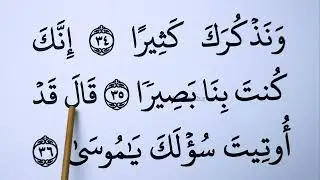 وَنَذْكُرَكَ كَثِيرًا ٣٤ إِنَّكَ
كُنتَ بِنَا بَصِيرًا ٣٥ قَالَ قَدْ
أُوتِيتَ سُؤْلَكَ يَـٰمُوسَىٰ ٣٦